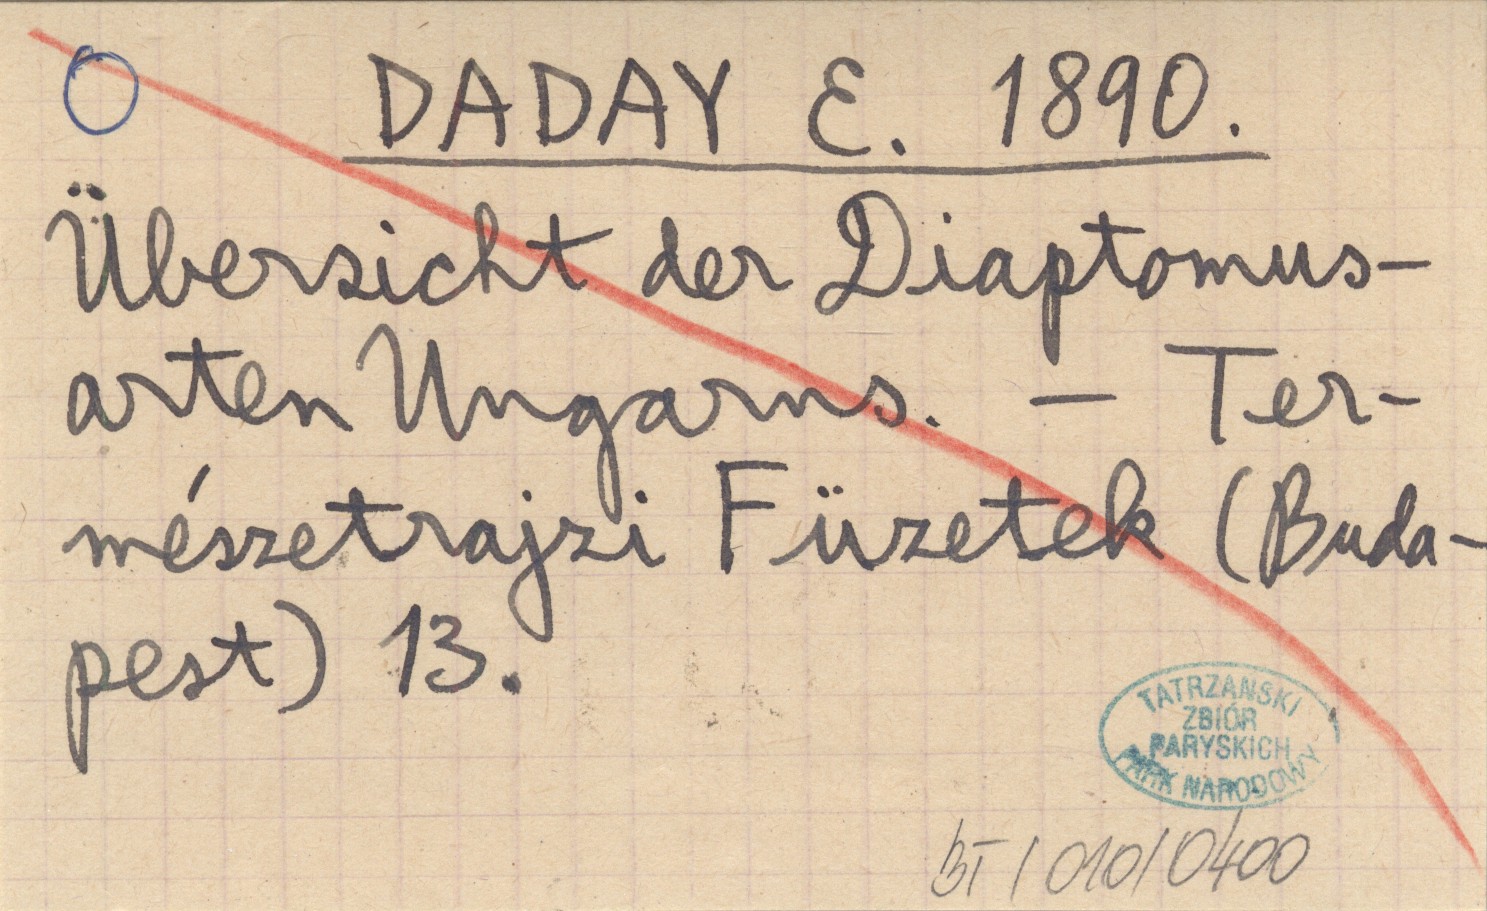 DADAY E. 1890.
Übersicht der Diaptomus-
arten Ungarns. — Ter-
mészetrajzi Füzetek (Buda-
pest) 13.
TATRZAŃSKI
ZBIÓR
PARYSKICH
PARK NARODOWY
BT/010/0400